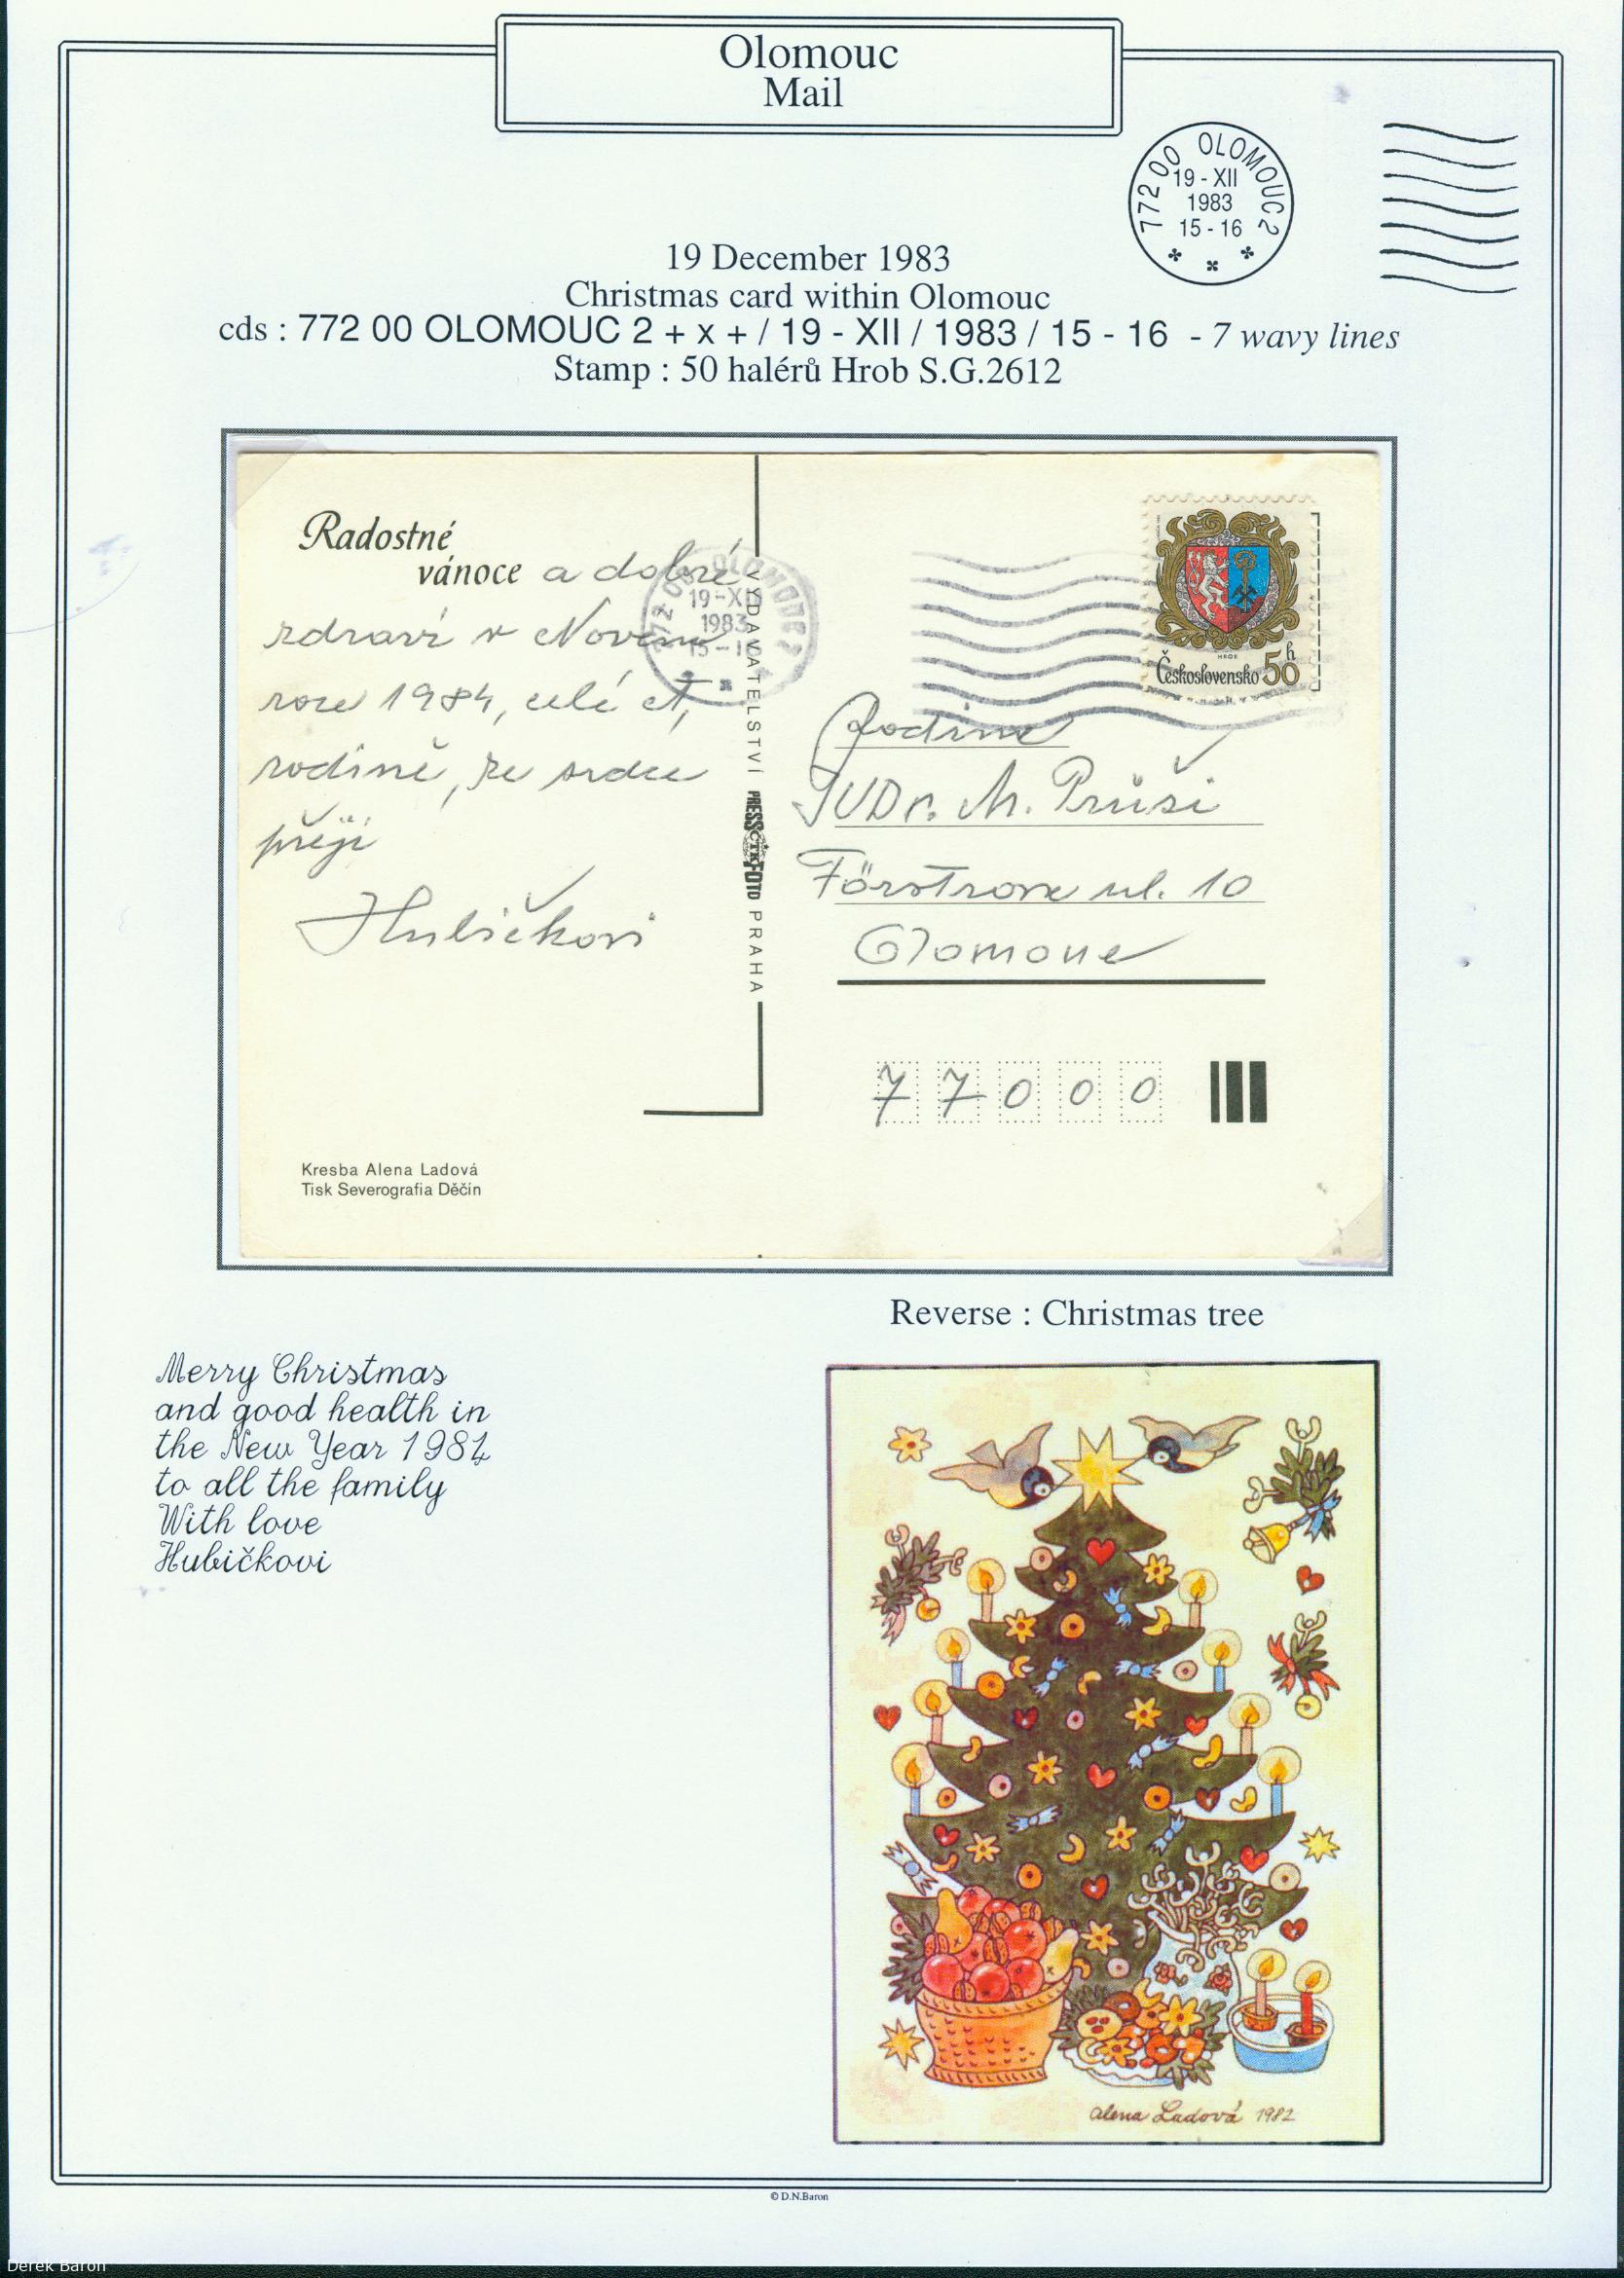 Olomouc
Mail
772 00 OLOMOUC 2
19 - XII
1983
15 - 16
19 December 1983
Christmas card within Olomouc
cds : 772 00 OLOMOUC 2 + x + / 19 - XII / 1983 / 15 - 16 - 7 wavy lines
Stamp : 50 halérů Hrob S.G.2612
Radostné
vánoce a dobré
zdraví v Novém
roce 1984, celé ct,
rodině, ze srdce
přejí
Hubičkovi
Kresba Alena Ladová
Tisk Severografia Děčín
772 00 OLOMOUC 2
19-XII
1983
15-16
VYDAVATELSTVÍ PRESSFOTO ČTK PRAHA
HROB
Československo 50 h
Rodina
JUDr. M. Průši
Förstrova ul. 10
Olomouc
77000
Reverse : Christmas tree
Merry Christmas
and good health in
the New Year 1984
to all the family
With love
Hubičkovi
Alena Ladová 1982
© D.N.Baron
Derek Baron